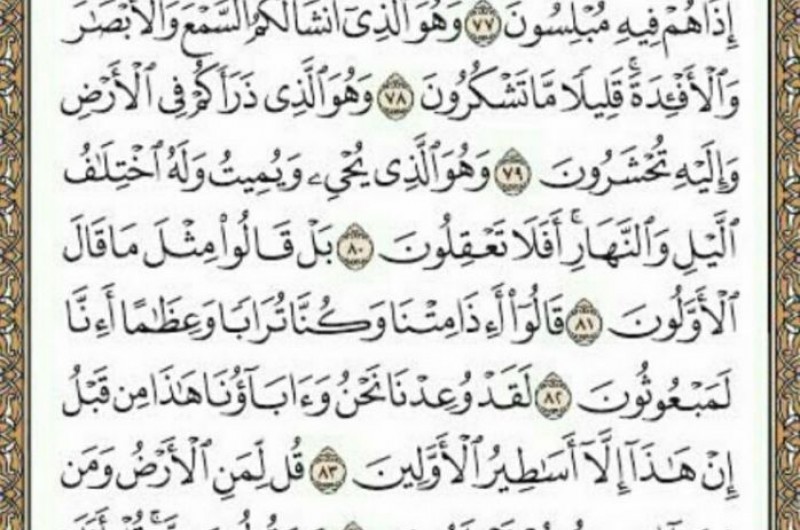 إِذَا هُمْ فِيهِ مُبْلِسُونَ ٧٧ وَهُوَ ٱلَّذِىٓ أَنشَأَ لَكُمُ ٱلسَّمْعَ وَٱلْأَبْصَٰرَ
وَٱلْأَفْـِٔدَةَ ۚ قَلِيلًا مَّا تَشْكُرُونَ ٧٨ وَهُوَ ٱلَّذِى ذَرَأَكُمْ فِى ٱلْأَرْضِ
وَإِلَيْهِ تُحْشَرُونَ ٧٩ وَهُوَ ٱلَّذِى يُحْىِۦ وَيُمِيتُ وَلَهُ ٱخْتِلَٰفُ
ٱلَّيْلِ وَٱلنَّهَارِ ۚ أَفَلَا تَعْقِلُونَ ٨٠ بَلْ قَالُوا۟ مِثْلَ مَا قَالَ
ٱلْأَوَّلُونَ ٨١ قَالُوٓا۟ أَءِذَا مِتْنَا وَكُنَّا تُرَابًا وَعِظَٰمًا أَءِنَّا
لَمَبْعُوثُونَ ٨٢ لَقَدْ وُعِدْنَا نَحْنُ وَءَابَآؤُنَا هَٰذَا مِن قَبْلُ
إِنْ هَٰذَآ إِلَّآ أَسَٰطِيرُ ٱلْأَوَّلِينَ ٨٣ قُل لِّمَنِ ٱلْأَرْضُ وَمَن